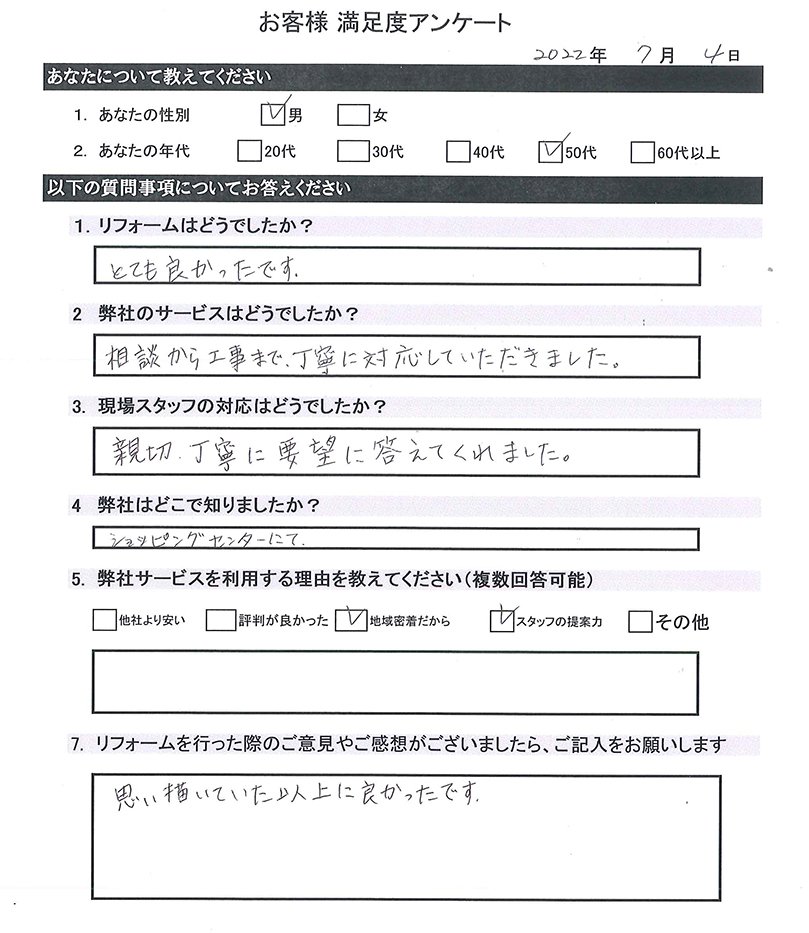 お客様 満足度アンケート
2022年 7月 4日
あなたについて教えてください
1. あなたの性別 男 女
2. あなたの年代 20代 30代 40代 50代 60代以上
以下の質問事項についてお答えください
1. リフォームはどうでしたか？
とても良かったです.
2 弊社のサービスはどうでしたか？
相談から工事まで、丁寧に対応していただきました。
3. 現場スタッフの対応はどうでしたか？
親切、丁寧に要望に答えてくれました。
4 弊社はどこで知りましたか？
ショッピングセンターにて.
5. 弊社サービスを利用する理由を教えてください（複数回答可能）
他社より安い 評判が良かった 地域密着だから スタッフの提案力 その他
7. リフォームを行った際のご意見やご感想がございましたら、ご記入をお願いします
思い描いていた以上に良かったです.